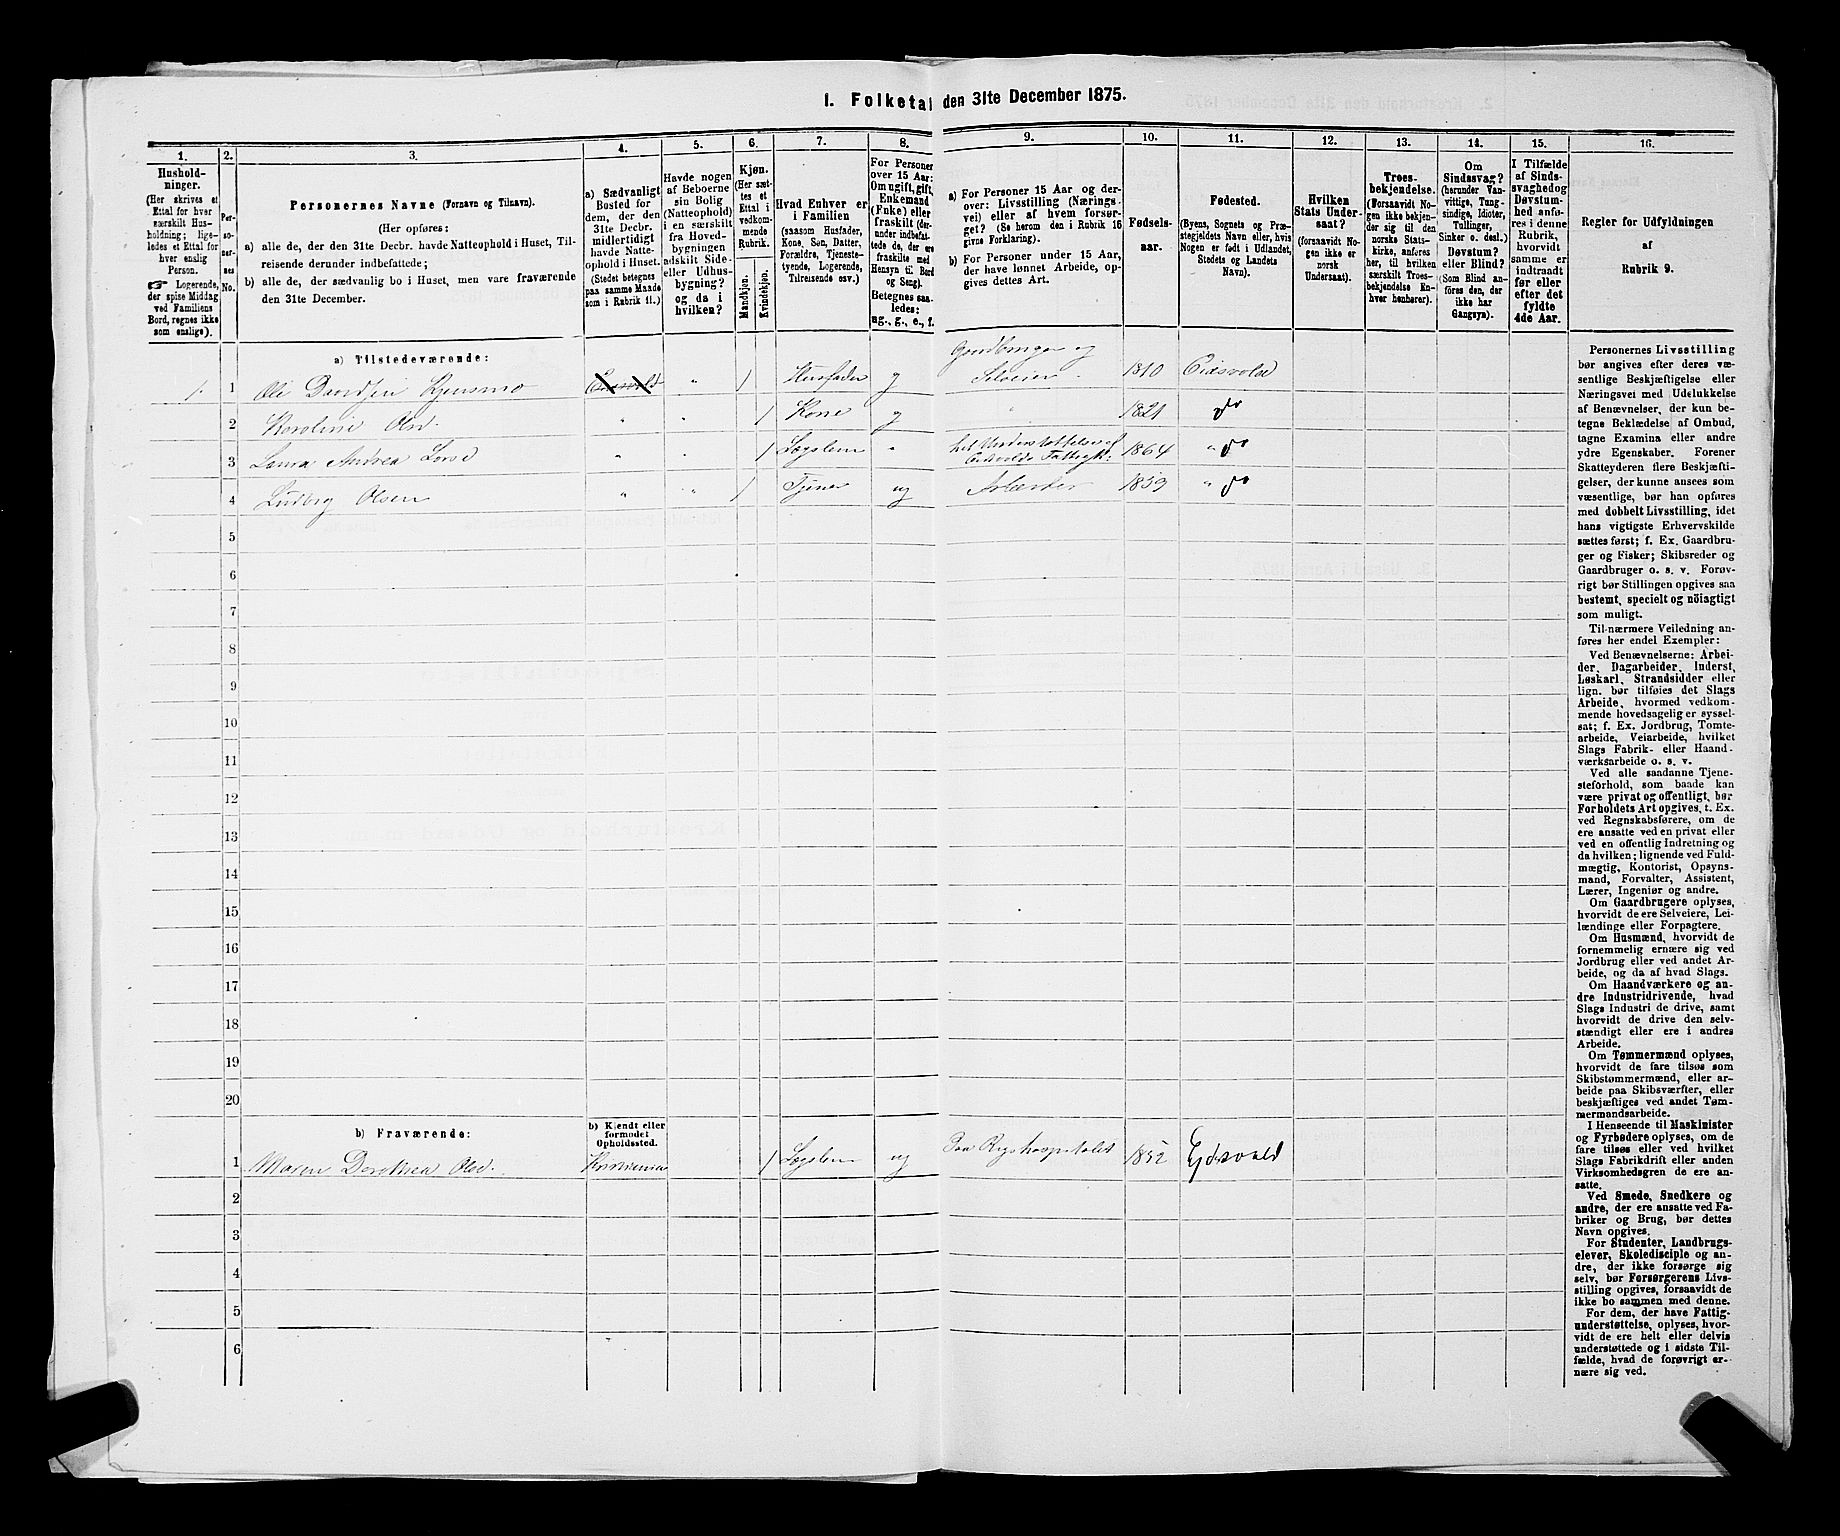 1. Folketal den 31te December 1875.
1.
Hushold-
ninger.
(Her skrives et
Ettal for hver
særskilt Hus-
holdning; lige-
ledes et Ettal for
hver enslig
Person.
☞ Logerende,
der spise Middag
ved Familiens
Bord, regnes ikke
som enslige).
2.
Per-
so-
ner-
nes
No.
3.
Personernes Navne (Fornavn og Tilnavn).
(Her opføres:
a) alle de, der den 31te Decbr. havde Natteophold i Huset, Til-
reisende derunder indbefattede;
b) alle de, der sædvanlig bo i Huset, men vare fraværende
den 31te December.
4.
a) Sædvanligt
Bosted for
dem, der den
31te Decbr.
midlertidigt
havde Natte-
ophold i Huset.
(Stedet betegnes
paa samme Maade
som i Rubrik 11.)
5.
Havde nogen
af Beboerne
sin Bolig
(Natteophold)
i en særskilt
fra Hoved-
bygningen
adskilt Side-
eller Udhus-
bygning?
og da i
hvilken?
6.
Kjøn.
(Her sæt-
tes et
Ettal i
vedkom-
mende
Rubrik.
Mandkjøn.
Kvindekjøn.
7.
Hvad Enhver er
i Familien
(saasom Husfader,
Kone, Søn, Datter,
Forældre, Tjeneste-
tyende, Logerende,
Tilreisende osv.)
8.
For Personer
over 15 Aar:
Om ugift, gift,
Enkemand
(Enke) eller
fraskilt (der-
under indbefat-
tede de, der ere
fraskilte med
Hensyn til Bord
og Seng).
Betegnes saa-
ledes:
ug., g., e., f.
9.
a) For Personer 15 Aar og der-
over: Livsstilling (Nærings-
vei) eller af hvem forsør-
get? (Se herom den i Rubrik 16
givne Forklaring).
b) For Personer under 15 Aar,
der have lønnet Arbeide, op-
gives dettes Art.
10.
Fødsels-
aar.
11.
Fødested.
(Byens, Sognets og Præ-
stegjeldets Navn eller, hvis
Nogen er født i Udlandet,
Stedets og Landets
Navn).
12.
Hvilken
Stats Under-
saat?
(forsaavidt No-
gen ikke er
norsk
Undersaat).
13.
Troes-
bekjendelse.
(Forsaavidt No-
gen ikke bekjen-
der sig til den
norske Stats-
kirke, anføres
her, til hvilken
særskilt Troes-
bekjendelse En-
hver henhører).
14.
Om
Sindssvag?
(herunder Van-
vittige, Tung-
sindige, Idioter,
Tullinger,
Sinker o. desl.)
Døvstum?
eller Blind?
(Som Blind an-
føres den, der
ikke har
Gangsyn).
15.
I Tilfælde
af Sinds-
svaghed og
Døvstum-
hed anfø-
res i denne
Rubrik,
hvorvidt
samme er
indtraadt
før eller
efter det
fyldte
4de Aar.
16.
Regler for Udfyldningen
af
Rubrik 9.
a) Tilstedeværende:
1. 1 Kjensmo Eidsvold " 1 Husfader g Gaardbruger og Selveier 1810 Eidsvold
2 Karoline Olsd. " " 1 Kone g " 1821 do
3 Laura Andrea Larsd " " 1 Lægslem " 1864 " do
4 Ludvig Olsen " " 1 Tjener ug Arbeider 1859 " do
5
6
7
8
9
10
11
12
13
14
15
16
17
18
19
20
b) Fraværende:
b) Kjendt eller
formodet
Opholdssted.
1 Maren Dorothea Olsd. Kristiania 1 Lægslem ug Paa Rigshospitalet 1852 Ejdsvold
2
3
4
5
6
Personernes Livsstilling
bør angives efter deres væ-
sentlige Beskjæftigelse eller
Næringsvei med Udelukkelse
af Benævnelser, der kun be-
tegne Beklædelse af Ombud,
tagne Examina eller andre
ydre Egenskaber. Forener
Skatteyderen flere Beskjæfti-
gelser, der kunne ansees som
væsentlige, bør han opføres
med dobbelt Livsstilling, idet
hans vigtigste Erhvervskilde
sættes først; f. Ex. Gaardbru-
ger og Fisker; Skibsreder og
Gaardbruger o. s. v. Forøv-
rigt bør Stillingen opgives saa
bestemt, specielt og nöiagtigt
som muligt.
Til nærmere Veiledning an-
føres her endel Exempler:
Ved Benævnelserne: Arbei-
der, Dagarbeider, Inderst,
Løskarl, Strandsidder eller
lign. bør tilføies det Slags
Arbeide, hvormed vedkom-
mende hovedsagelig er syssel-
sat; f. Ex. Jordbrug, Tomte-
arbeide, Veiarbeide, hvilket
Slags Fabrik- eller Haand-
værksarbeide o. s. v.
Ved alle saadanne Tjene-
steforhold, som baade kan
være privat og offentligt, bør
Forholdets Art opgives, t. Ex.
ved Regnskabsførere, om de
ere ansatte ved en privat eller
ved en offentlig Indretning og
da hvilken; lignende ved Fuld-
mægtig, Kontorist, Opsyns-
mand, Forvalter, Assistent,
Lærer, Ingeniør og andre.
Om Gaardbrugere oplyses,
hvorvidt de ere Selveiere, Lei-
lændinge eller Forpagtere.
Om Husmænd, hvorvidt de
fornemmelig ernære sig ved
Jordbrug eller ved andet Ar-
beide, og da af hvad Slags.
Om Haandværkere og an-
dre Industridrivende, hvad
Slags Industri de drive, samt
hvorvidt de drive den selv-
stændigt eller ere i andres
Arbeide.
Om Tømmermænd oplyses,
hvorvidt de fare tilsøs som
Skibstømmermænd, eller ar-
beide paa Skibsværfter, eller
beskjæftiges ved andet Tøm-
mermandsarbeide.
I Henseende til Maskinister
og Fyrbødere oplyses, om de
fare tilsøs eller ved hvilket
Slags Fabrikdrift eller anden
Virksomhedsgren de ere an-
satte.
Ved Smede, Snedkere og
andre, der ere ansatte ved Fa-
briker og Brug, bør dettes
Navn opgives.
For Studenter, Landbrugs-
elever, Skoledisciple og an-
dre, der ikke forsørge sig
selv, bør Forsørgerens Livs-
stilling opgives, forsaavidt de
ikke bo sammen med denne.
For dem, der have Fattig-
understøttelse, oplyses, hvor-
vidt de ere helt eller delvis
understøttede og i sidste Til-
fælde, hvad de forøvrigt er-
nære sig ved.